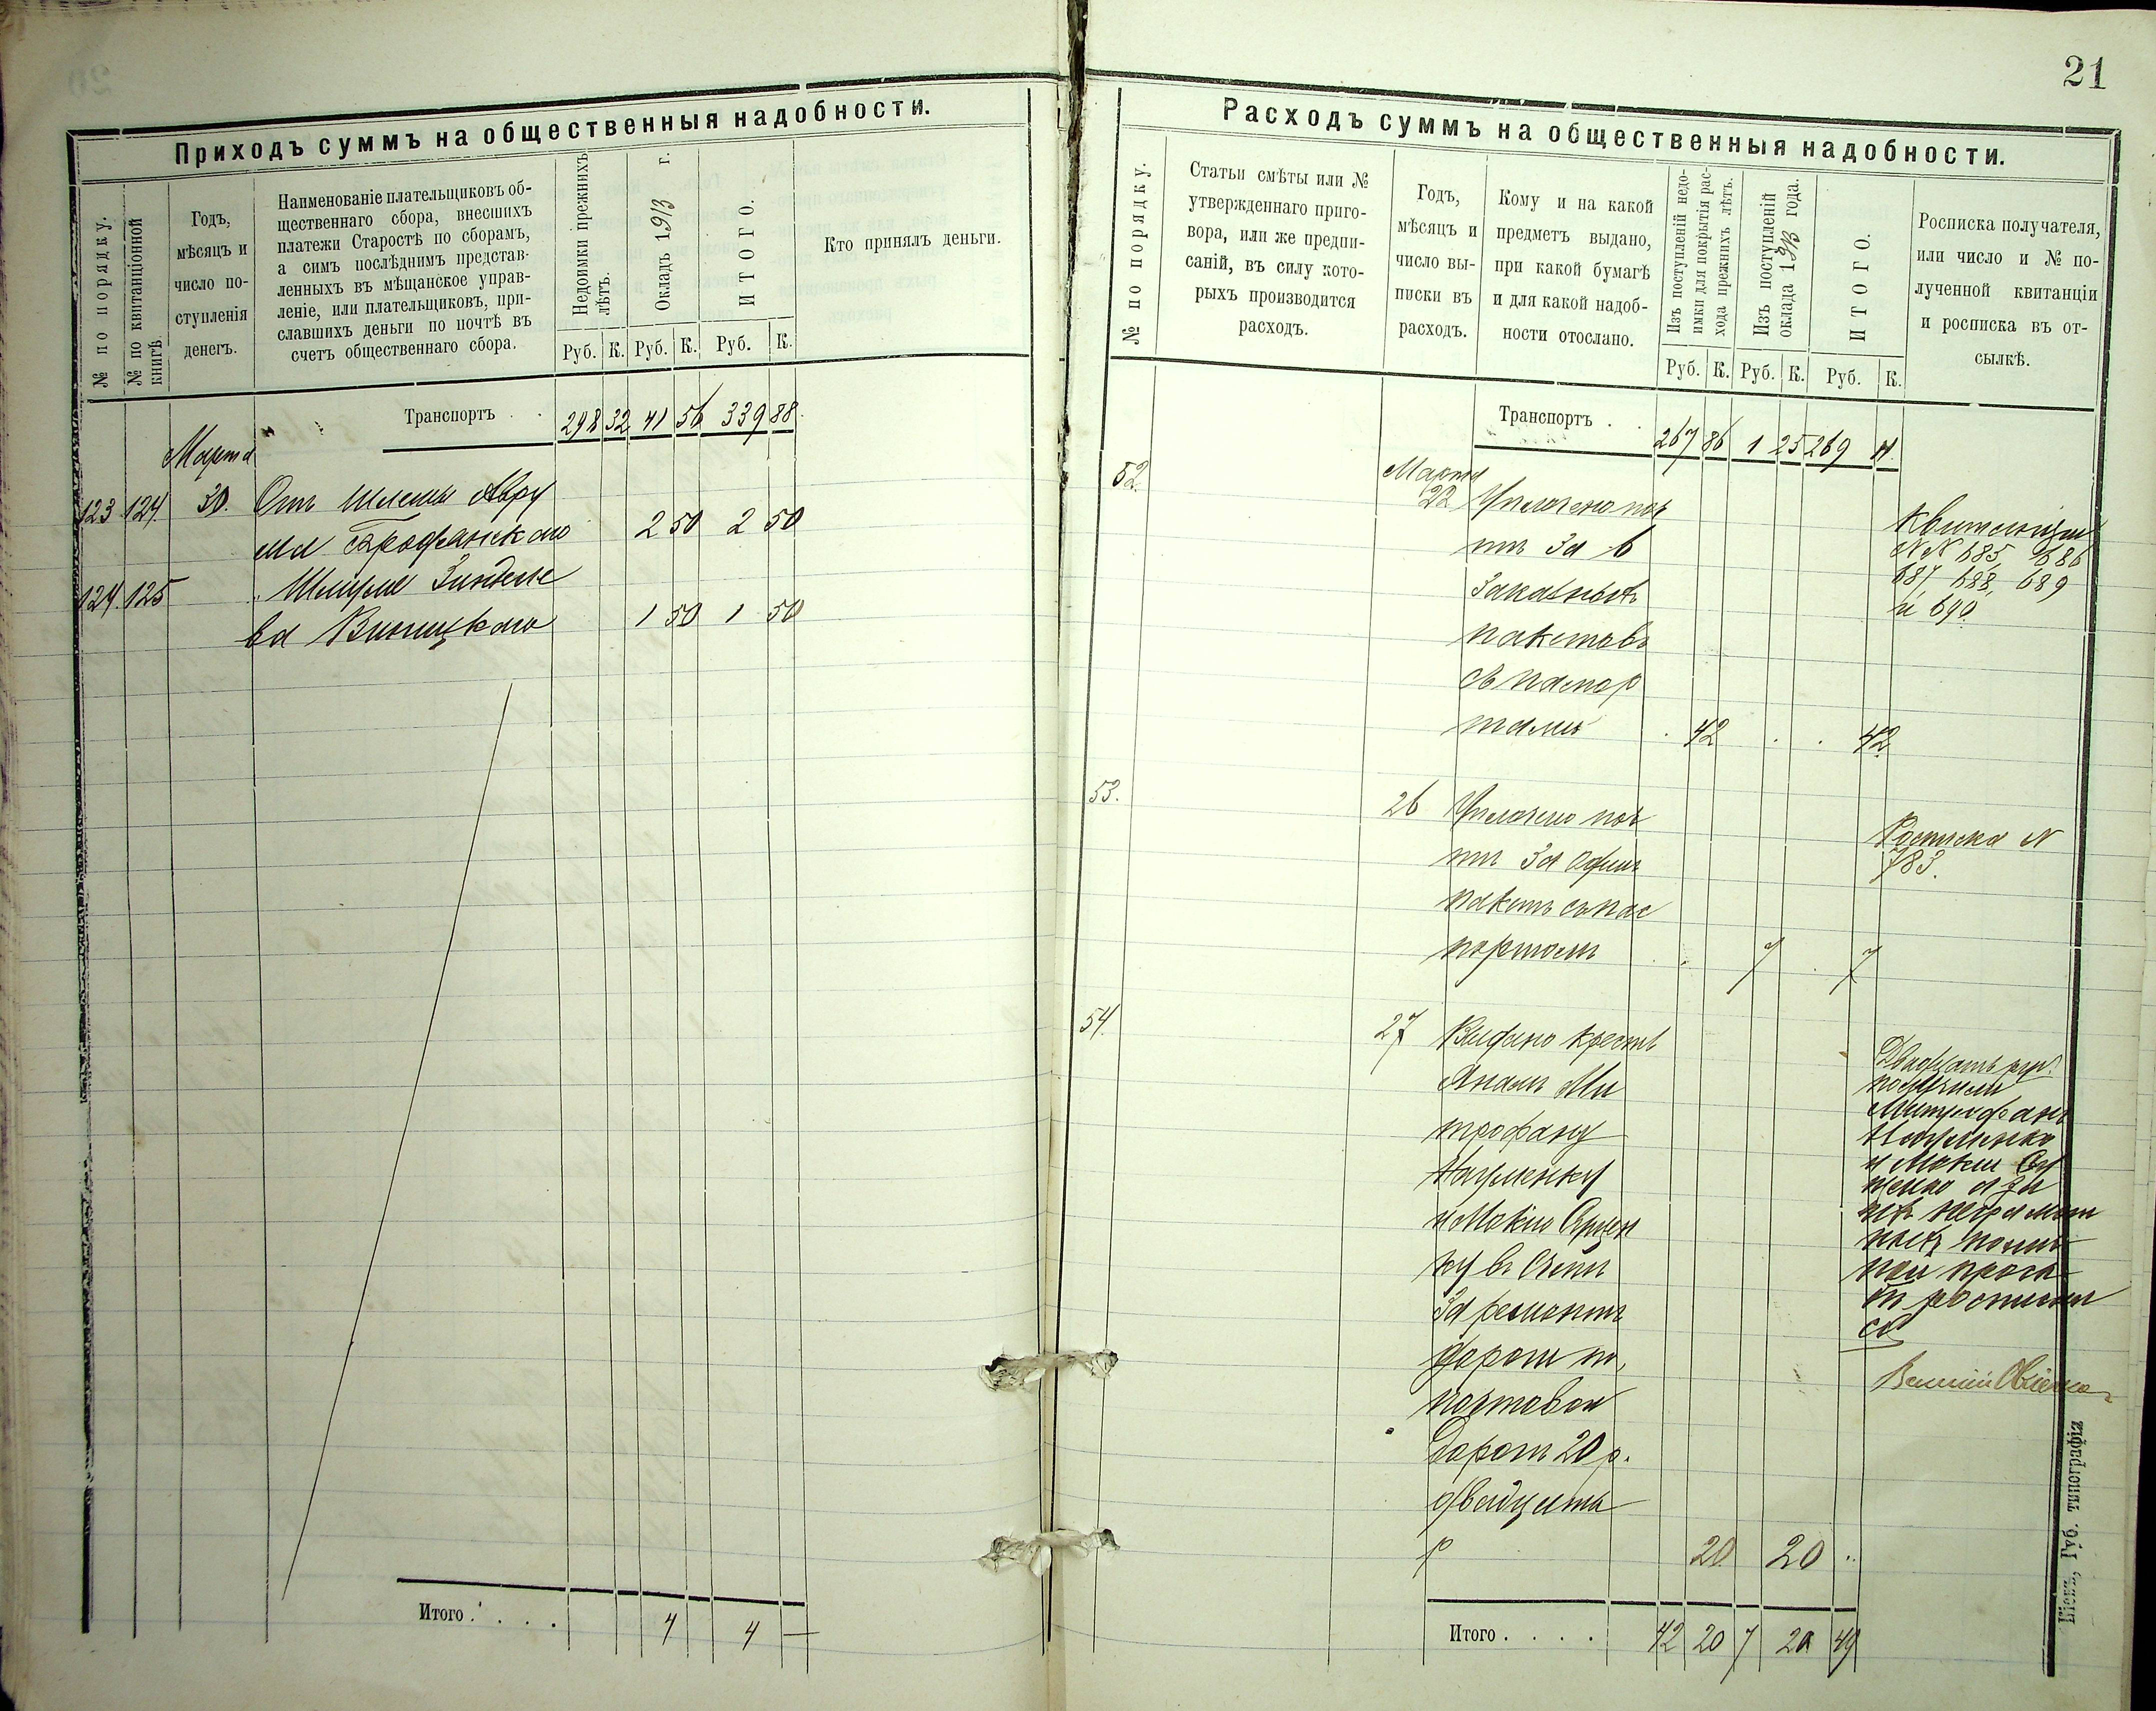 21
Приходъ суммъ на общественныя надобности.
№ по порядку.
№ по квитанціонной
книгѣ.
Годъ,
мѣсяцъ и
число по-
ступленія
денегъ.
Наименованіе плательщиковъ об-
щественнаго сбора, внесшихъ
платежи Старостѣ по сборамъ,
а симъ послѣднимъ представ-
ленныхъ въ мѣщанское управ-
леніе, или плательщиковъ, при-
славшихъ деньги по почтѣ въ
счетъ общественнаго сбора.
Недоимки прежнихъ
лѣтъ.
Окладъ 1913 г.
ИТОГО.
Кто принялъ деньги.
Руб. К. Руб. К. Руб. К.
Транспортъ . . 298 32 41 56 339 88
Марта
123 124 30. Отъ Шлемы Авру
ма 2 50 2 50
124 125 Шмуля
ва Виницкаго 1 50 1 50
Итого . . . . 4 4 —
Расходъ суммъ на общественныя надобности.
№ по порядку.
Статьи смѣты или №
утвержденнаго приго-
вора, или же предпи-
саній, въ силу кото-
рыхъ производится
расходъ.
Годъ,
мѣсяцъ и
число вы-
писки въ
расходъ.
Кому и на какой
предметъ выдано,
при какой бумагѣ
и для какой надоб-
ности отослано.
Изъ поступленій недо-
имки для покрытія рас-
хода прежнихъ лѣтъ.
Изъ поступленій
оклада 1913 года.
ИТОГО.
Росписка получателя,
или число и № по-
лученной квитанціи
и росписка въ от-
сылкѣ.
Руб. К. Руб. К. Руб. К.
Транспортъ . . 267 86 1 25 269 11
52. Марта
22 Уплочено поч
тѣ за 6
заказныхъ
пакетовъ
съ паспор
тами . 42 . . 42
Квитанціи
NN 685, 686
687 688, 689
и 690.
53. 26 Уплочено поч
тѣ за одинъ
пакетъ съ пас
портомъ . 7 . 7
Росписка N
783.
54. 27 Видано кресть
янамъ Ми
трофану
Науменку
и Мокію
ку въ
за ремонтъ
дороги по
почтовой
дорогѣ 20 р.
двадцать
р 20 20 "
Двадцать руб.
получили
Митрофанъ
Науменко
и Мокій
Итого . . . . 42 20 7 20 49
Кіевъ, Губ. типографія